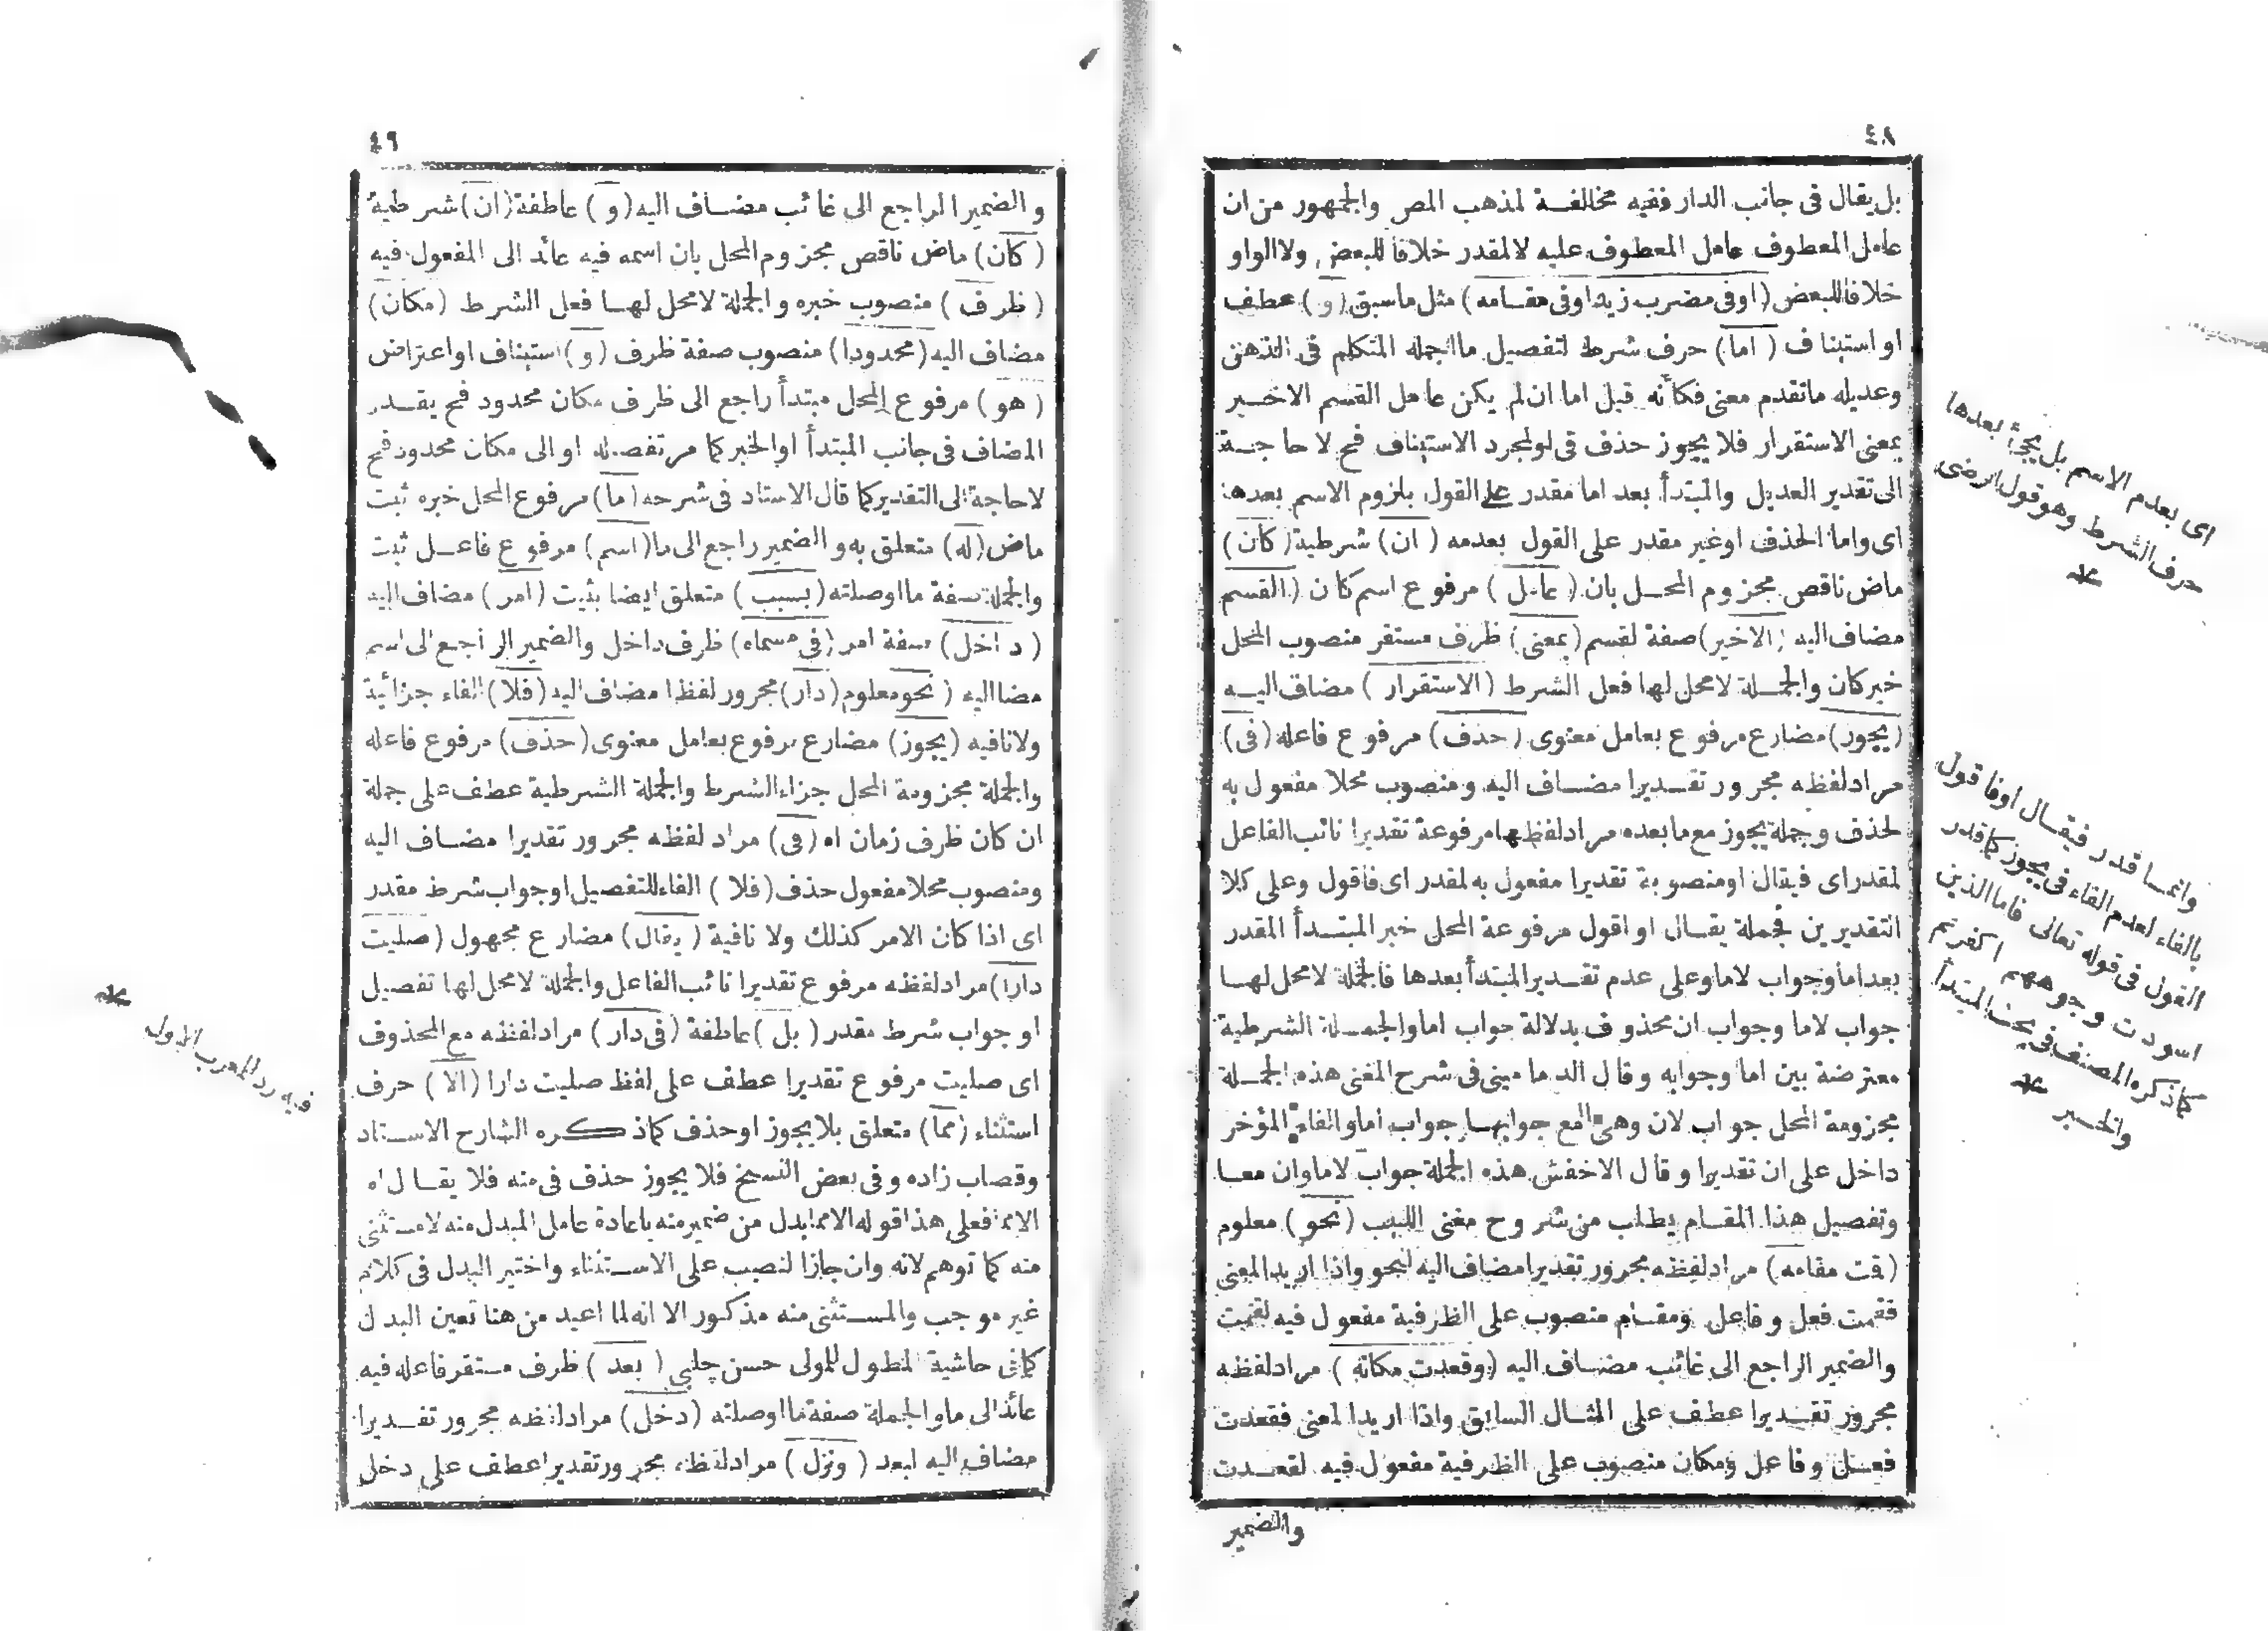 ٤٨
بل يقال فى جانب الدار ففيه مخالفة لمذهب المص والجمهور من ان
عامل المعطوف عامل المعطوف عليه لا لمقدر خلافا للبعض ولا الواو
خلافا للبعض (او فى مضرب زيد او فى مقامه) مثل ما سبق (و) عطف
او استيناف (اما) حرف شرط لتفصيل ما اجمله المتكلم فى الذهن
وعديله ما تقدم معنى فكأنه قيل اما ان لم يكن عامل القسم الاخير
بمعنى الاستقرار فلا يجوز حذف فى او لمجرد الاستيناف فح لا حاجة
الى تقدير العديل والمبتدأ بعد اما مقدر على القول بلزوم الاسم بعدها
اى واما الحذف او غير مقدر على القول بعدمه (ان) شرطية (كان)
ماض ناقص مجزوم المحل بان (عامل) مرفوع اسم كان (القسم
مضاف اليه (الاخير) صفة لقسم (بمعنى) ظرف مستقر منصوب المحل
خبر كان والجملة لا محل لها فعل الشرط (الاستقرار) مضاف اليه
(يجوز) مضارع مرفوع بعامل معنوى (حذف) مرفوع فاعله (فى)
مراد لفظه مجرور تقديرا مضاف اليه ومنصوب محلا مفعول به
لحذف وجملة يجوز مع ما بعده مراد لفظها مرفوعة تقديرا نائب الفاعل
لمقدر اى فيقال او منصوبة تقديرا مفعول به لمقدر اى فاقول وعلى كلا
التقديرين فجملة يقال او اقول مرفوعة المحل خبر المبتدأ المقدر
بعد اما وجواب لاما وعلى عدم تقدير المبتدأ بعدها فالجملة لا محل لها
جواب لاما وجواب ان محذوف بدلالة جواب اما والجملة الشرطية
معترضة بين اما وجوابه وقال الدمامينى فى شرح المغنى هذه الجملة
مجزومة المحل جواب لان وهى مع جوابها جواب اما والفاء المؤخر
داخل على ان تقديرا وقال الاخفش هذه الجملة جواب لاما وان معا
وتفصيل هذا المقام يطلب من شروح مغنى اللبيب (نحو) معلوم
(قمت مقامه) مراد لفظه مجرور تقديرا مضاف اليه لنحو واذا اريد المعنى
فقمت فعل وفاعل ومقام منصوب على الظرفية مفعول فيه لقمت
والضمير الراجع الى غائب مضاف اليه (وقعدت مكانه) مراد لفظه
مجرور تقديرا عطف على المثال السابق واذا اريد المعنى فقعدت
فعل وفاعل ومكان منصوب على الظرفية مفعول فيه لقعدت
والضمير
اى بعدم الاسم بل يجئ بعدها
حرف الشرط وهو قول الرضى
وانما قدر فيقال او فاقول
بالفاء لعدم الفاء فى يجوز كما قدر
القول فى قوله تعالى فاما الذين
اسودت وجوههم اكفرتم
كما ذكره المصنف فى بحث المبتدأ
والخبر
٤٩
والضمير الراجع الى غائب مضاف اليه (و) عاطفة (ان) شرطية
(كان) ماض ناقص مجزوم المحل بان اسمه فيه عائد الى المفعول فيه
(ظرف) منصوب خبره والجملة لا محل لها فعل الشرط (مكان)
مضاف اليه (محدودا) منصوب صفة ظرف (و) استيناف او اعتراض
(هو) مرفوع المحل مبتدأ راجع الى ظرف مكان محدود فح يقدر
المضاف فى جانب المبتدأ او الخبر كما مر تفصيله او الى مكان محدود فح
لا حاجة الى التقدير كما قال الاستاد فى شرحه (ما) مرفوع المحل خبره ثبت
ماض (له) متعلق به والضمير راجع الى ما (اسم) مرفوع فاعل ثبت
والجملة صفة ما او صلته (بسبب) متعلق ايضا بثبت (امر) مضاف اليه
(داخل) صفة امر (فى مسماه) ظرف داخل والضمير الراجع الى اسم
مضا اليه (نحو) معلوم (دار) مجرور لفظا مضاف اليه (فلا) الفاء جزائية
ولا نافيه (يجوز) مضارع مرفوع بعامل معنوى (حذف) مرفوع فاعله
والجملة مجزومة المحل جزاء الشرط والجملة الشرطية عطف على جملة
ان كان ظرف زمان اه (فى) مراد لفظه مجرور تقديرا مضاف اليه
ومنصوب محلا مفعول حذف (فلا) الفاء للتفصيل او جواب شرط مقدر
اى اذا كان الامر كذلك ولا نافية (يقال) مضارع مجهول (صليت
دارا) مراد لفظه مرفوع تقديرا نائب الفاعل والجملة لا محل لها تفصيل
او جواب شرط مقدر (بل) عاطفة (فى دار) مراد لفظه مع المحذوف
اى صليت مرفوع تقديرا عطف على لفظ صليت دارا (الا) حرف
استثناء (مما) متعلق بلا يجوز او حذف كما ذكره الشارح الاستاد
وقصاب زاده وفى بعض النسخ فلا يجوز حذف فى منه فلا يقال اه
الا مما فعلى هذا قوله الا مما بدل من ضمير منه باعادة عامل المبدل منه لا مستثنى
منه كما توهم لانه وان جاز النصب على الاستثناء واختير البدل فى كلام
غير موجب والمستثنى منه مذكور الا انه لما اعيد من هنا تعين البدل
كما فى حاشية المطول للمولى حسن چلبى (بعد) ظرف مستقر فاعله فيه
عائد الى ما والجملة صفة ما او صلته (دخل) مراد لفظه مجرور تقديرا
مضاف اليه لبعد (ونزل) مراد لفظه مجرور تقديرا عطف على دخل
فيه رد للمعرب الاول